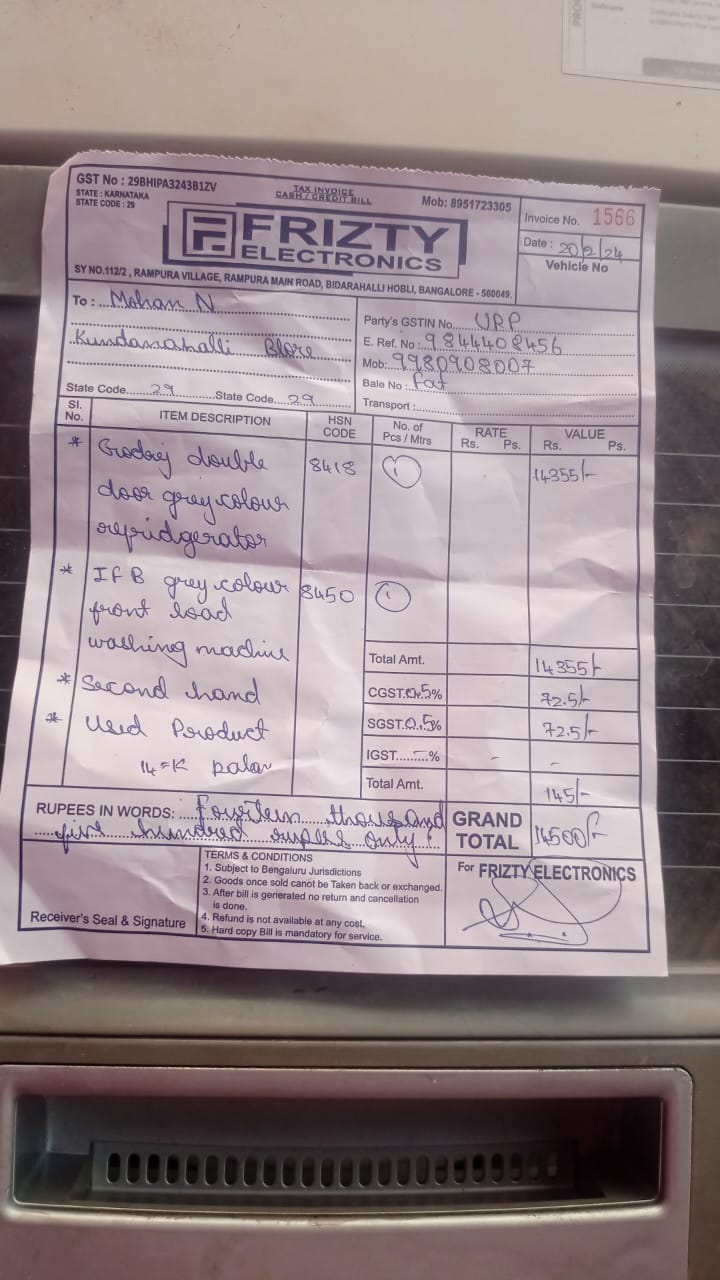 GST No : 29BHIPA3243B1ZV
STATE : KARNATAKA
STATE CODE : 29
TAX INVOICE
CASH / CREDIT BILL
Mob: 8951723305
FRIZTY
ELECTRONICS
SY NO.112/2 , RAMPURA VILLAGE, RAMPURA MAIN ROAD, BIDARAHALLI HOBLI, BANGALORE - 560049.
Invoice No. 1566
Date : 20/2/24
Vehicle No
To : Mohan N
Kundanahalli Blore
State Code 29 State Code 29
Party's GSTIN No. URP
E. Ref. No : 9844408456
Mob: 9980908007
Bale No :
Transport :
Sl. No. ITEM DESCRIPTION HSN CODE No. of Pcs / Mtrs RATE Rs. Ps. VALUE Rs. Ps.
* Godrej double 8418 1 14355/-
door grey colour
refridgerator
* IFB grey colour 8450 1
front load
washing machine
* Second hand
* Used Product
14=K
Total Amt. 14355/-
CGST 0.5% 72.5/-
SGST 0.5% 72.5/-
IGST % - -
Total Amt. 145/-
RUPEES IN WORDS: Fourteen thousand
five hundred rupees only
GRAND TOTAL 14500/-
Receiver's Seal & Signature
TERMS & CONDITIONS
1. Subject to Bengaluru Jurisdictions
2. Goods once sold canot be Taken back or exchanged.
3. After bill is generated no return and cancellation
is done.
4. Refund is not available at any cost.
5. Hard copy Bill is mandatory for service.
For FRIZTY ELECTRONICS